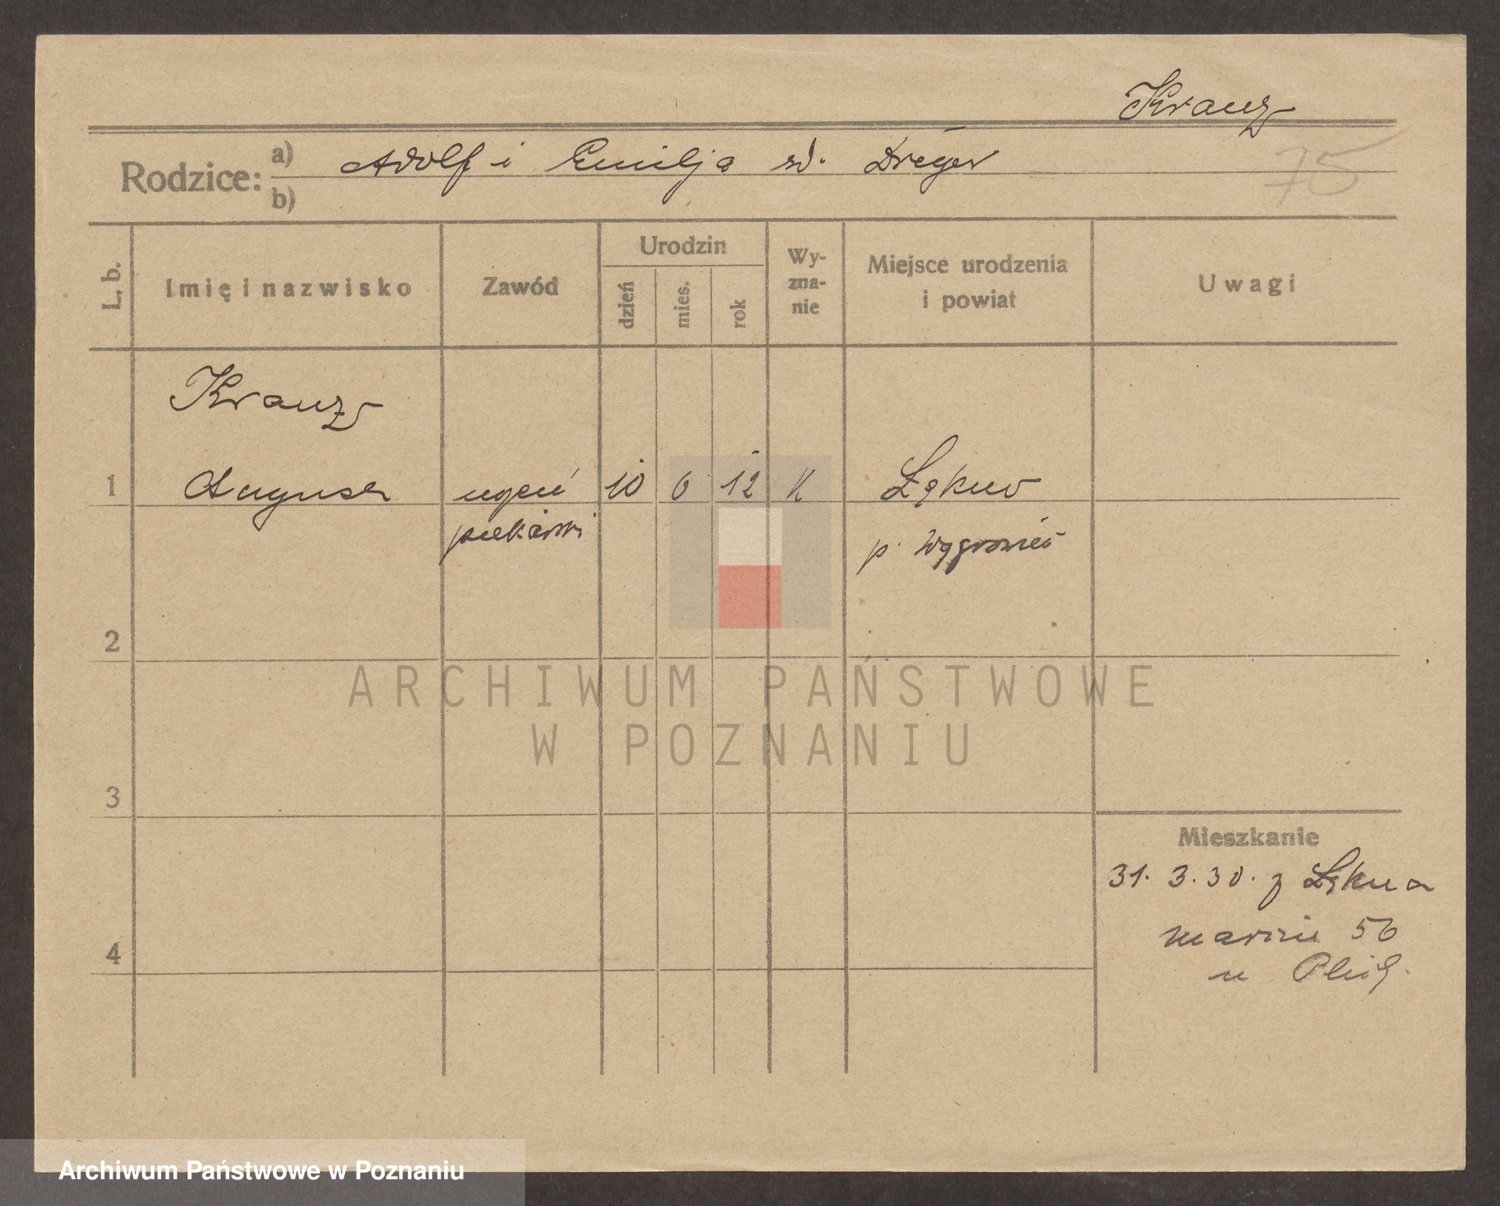 Kranz
75
Rodzice: a) Adolf i Emilja zd. Dreger
b)
L. b.
Imię i nazwisko
Zawód
Urodzin
dzień
mies.
rok
Wy-
zna-
nie
Miejsce urodzenia
i powiat
Uwagi
Kranz
1 August uczeń 10 6 12 K Łękno
piekarski p.
2
3
4
Mieszkanie
31. 3. 30. z Łekna
56
u
ARCHIWUM PAŃSTWOWE
W POZNANIU
Archiwum Państwowe w Poznaniu